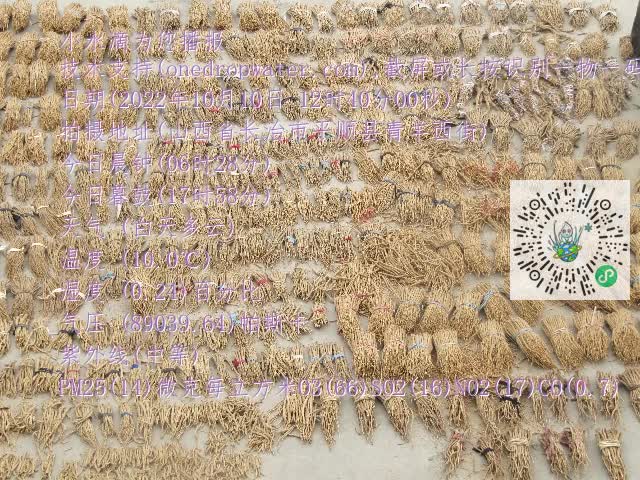 小水滴为您播报
技术支持(onedropwater.com) 截屏或长按识别一物一码
日期(2022年10月10日 12时10分00秒)
拍摄地址(山西省长治市平顺县青羊西街)
今日晨钟(06时28分)
今日暮鼓(17时58分)
天气 (白天多云)
温度 (10.0℃)
湿度 (0.24)百分比
气压 (89039.64)帕斯卡
紫外线(中等)
PM25(14)微克每立方米O3(66)SO2(16)NO2(17)CO(0.7)